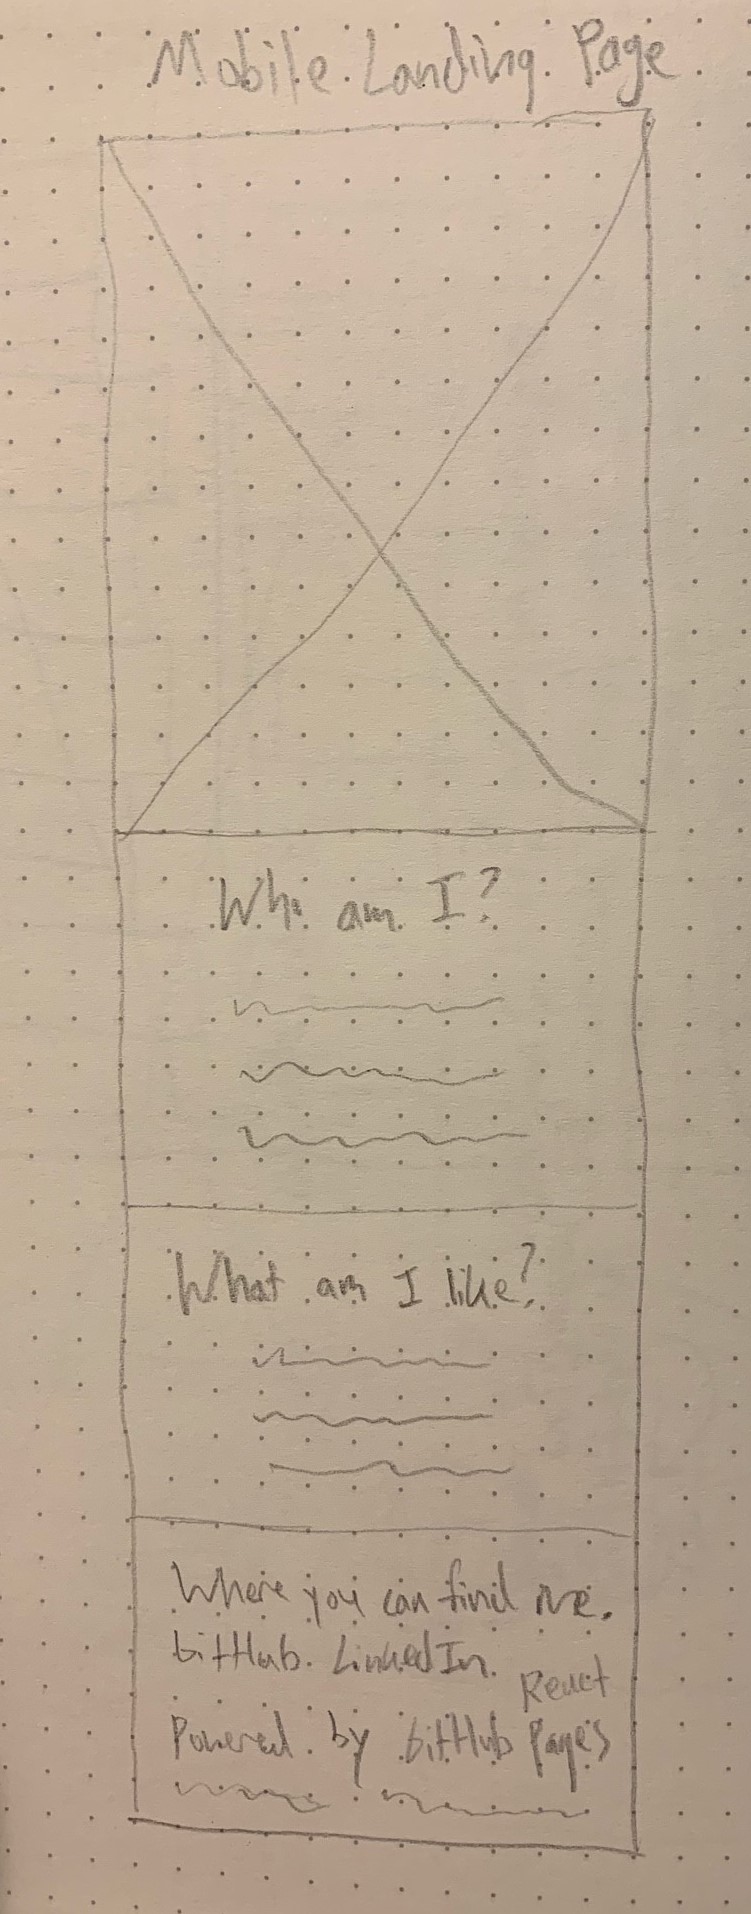 Mobile Landing Page
Who am I?
What am I like?
Where you can find me.
GitHub. LinkedIn.
React
Powered by GitHub Pages